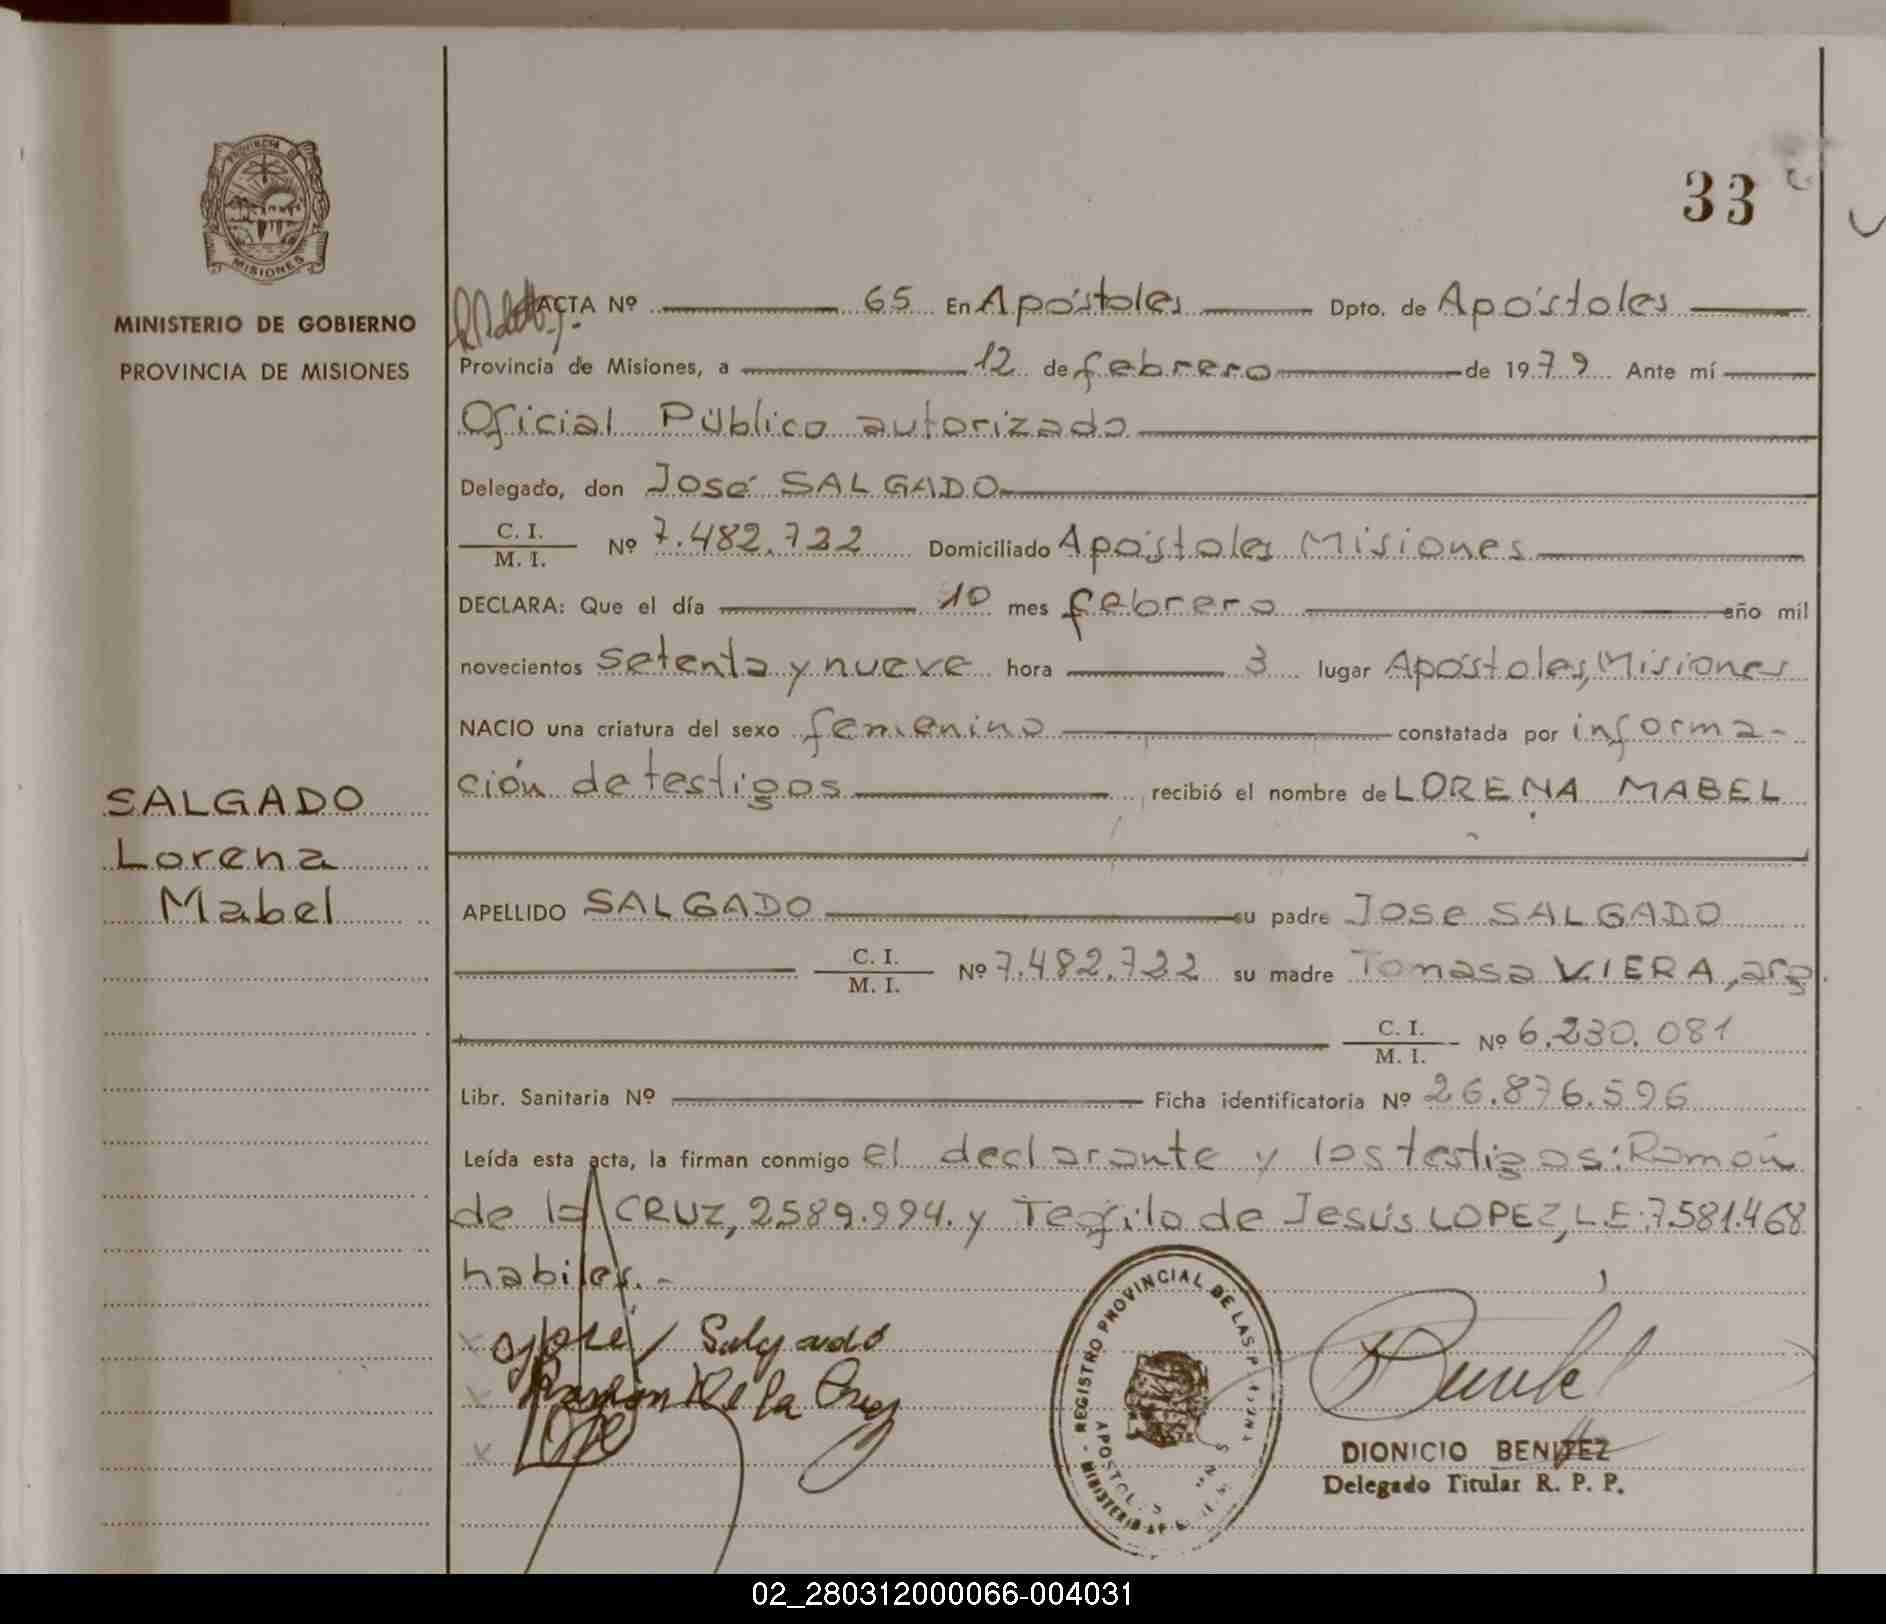 PROVINCIA DE
MISIONES
MINISTERIO DE GOBIERNO
PROVINCIA DE MISIONES
33
ACTA Nº 65 En Apóstoles Dpto. de Apóstoles
Provincia de Misiones, a 12 de febrero de 1979 Ante mí
Oficial Público autorizado
Delegado, don José SALGADO
C. I.
M. I. Nº 7.482.722 Domiciliado Apóstoles Misiones
DECLARA: Que el día 10 mes febrero año mil
novecientos setenta y nueve hora 3 lugar Apóstoles, Misiones
NACIO una criatura del sexo femenino constatada por informa-
ción de testigos recibió el nombre de LORENA MABEL
SALGADO
Lorena
Mabel
APELLIDO SALGADO su padre Jose SALGADO
C. I.
M. I. Nº 7.482.722 su madre Tomasa VIERA, arg.
C. I.
M. I. Nº 6.230.081
Libr. Sanitaria Nº Ficha identificatoria Nº 26.876.596
Leída esta acta, la firman conmigo el declarante y los testigos: Ramón
de la CRUZ, 2589.994. y Teofilo de Jesús LOPEZ, L.E. 7.581.468
habiles.-
José Salgado
Ramón De la Cruz
REGISTRO PROVINCIAL DE LAS
APOSTOLES
MINISTERIO
DIONICIO BENITEZ
Delegado Titular R. P. P.
02_280312000066-004031